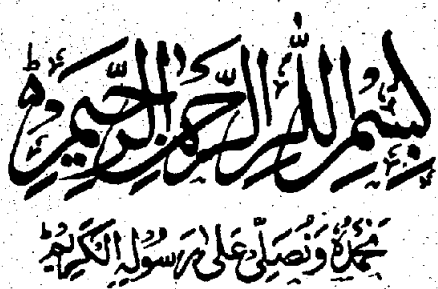 بِسْمِ اللّٰهِ الرَّحْمٰنِ الرَّحِيْمِ
نَحْمَدُهٗ وَنُصَلِّیْ عَلٰی رَسُوْلِہِ الْكَرِيْمِ